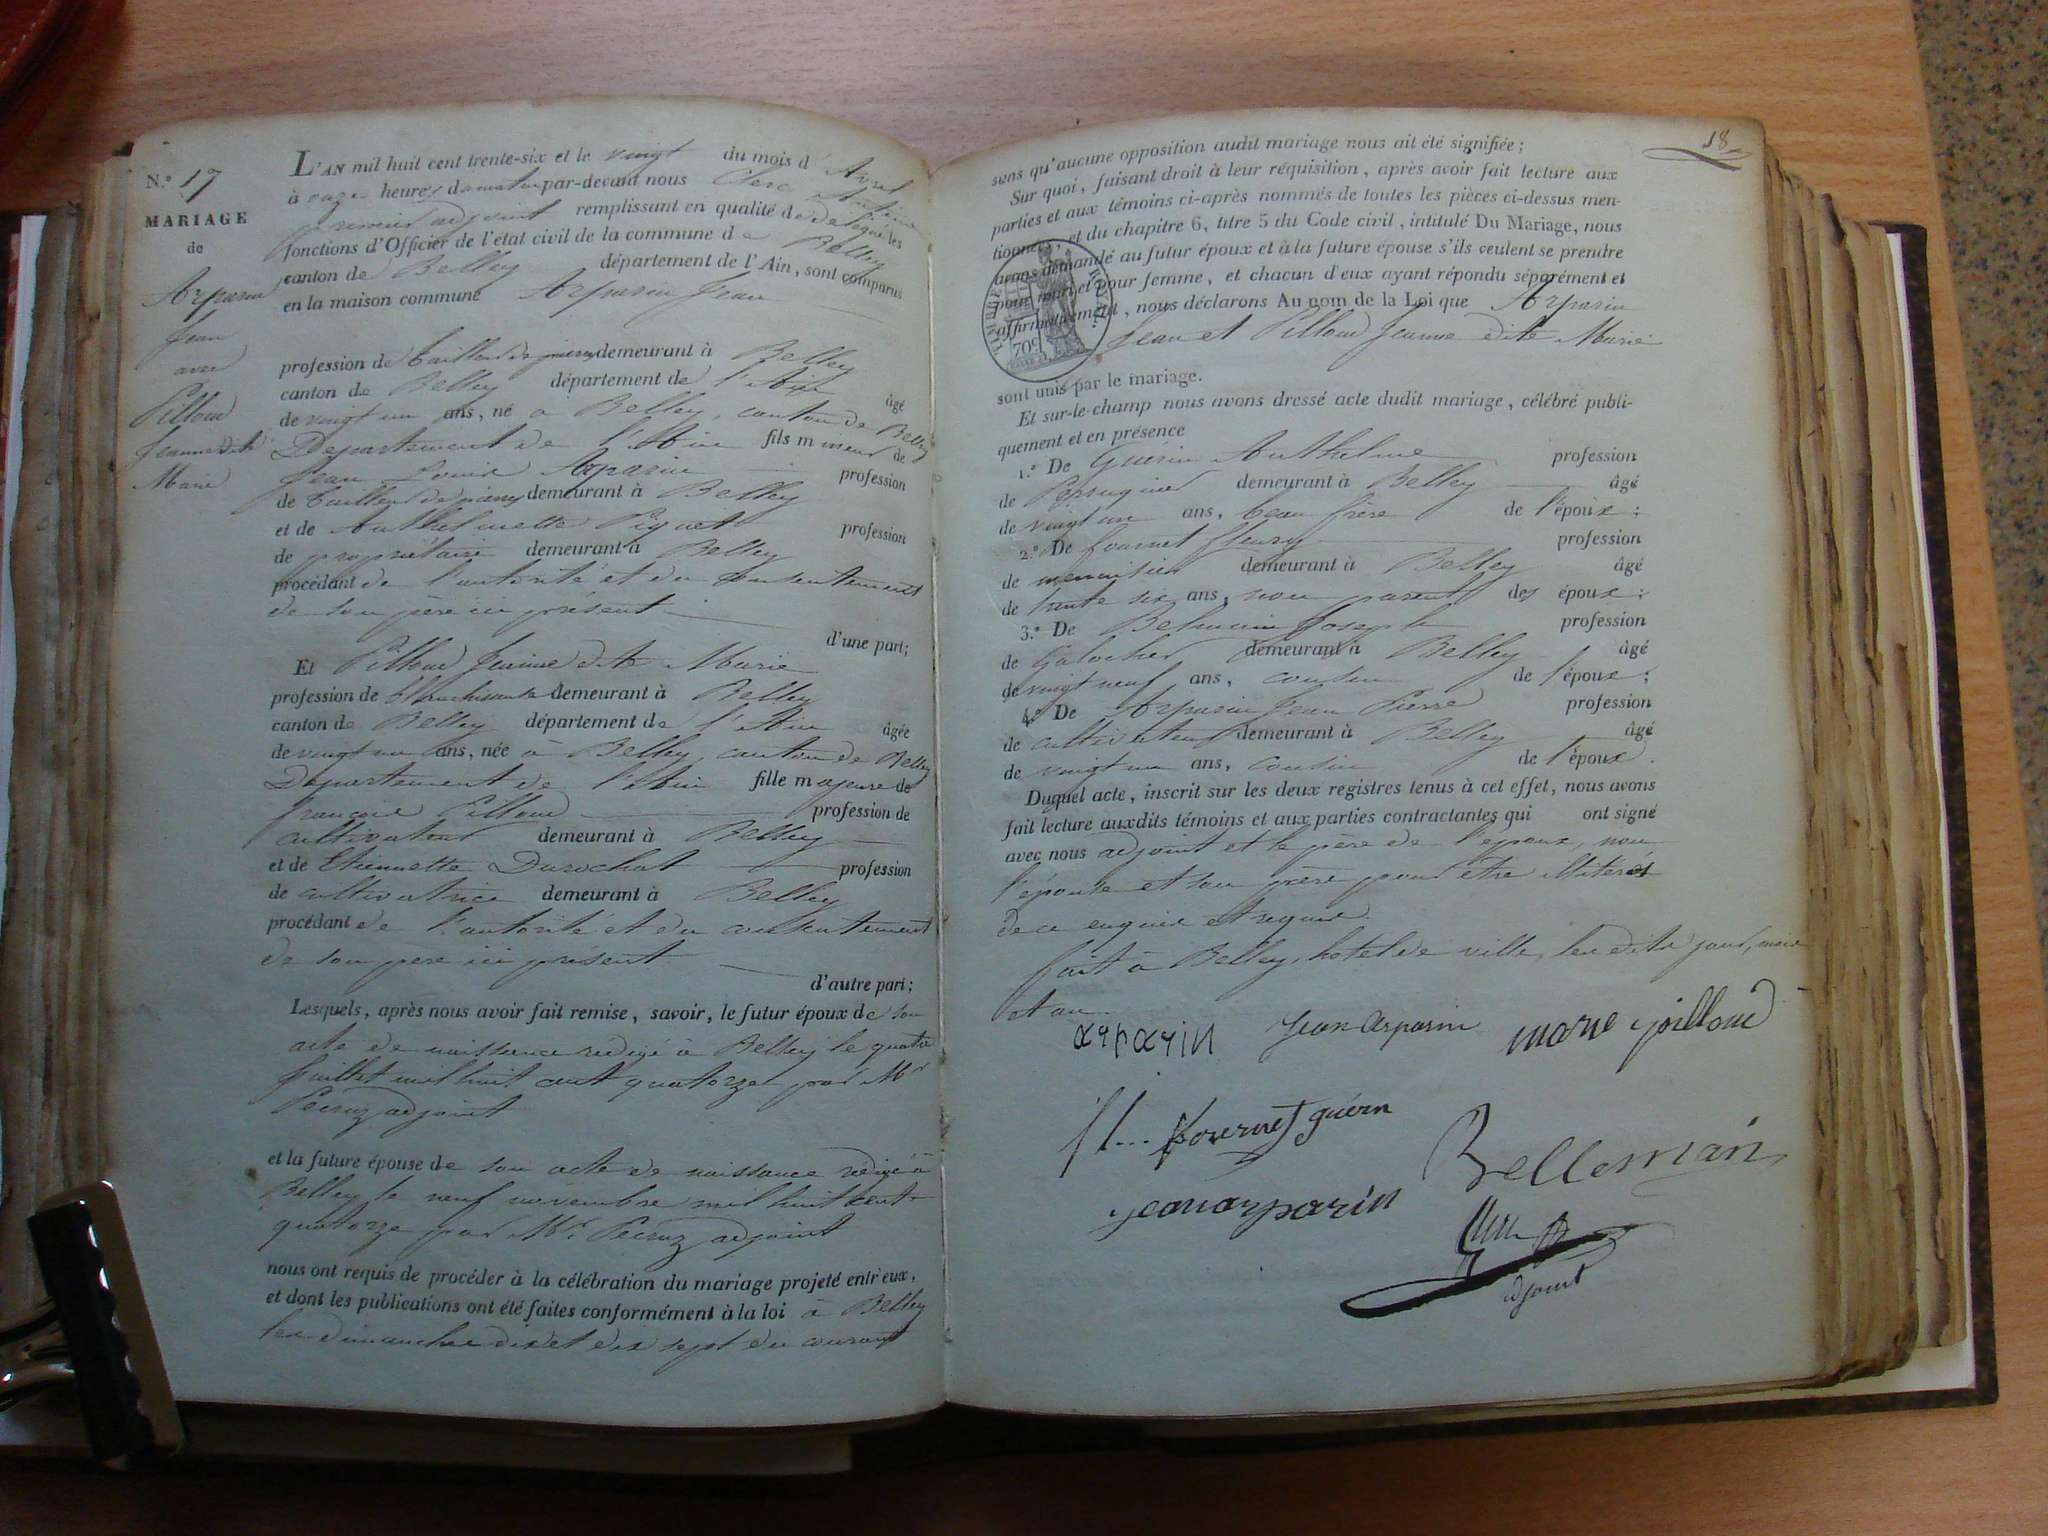 N.º 17
MARIAGE
de
Arparin
Jean
avec
Pilloud
Jeanne dite
Marie
L'AN mil huit cent trente-six et le vingt du mois d'Avril
à onze heures du matin par-devant nous Clerc Antoine
premier adjoint remplissant en qualité de délégué les
fonctions d'Officier de l'état civil de la commune de Belley
canton de Belley département de l'Ain, sont comparus
en la maison commune Arparin Jean
profession de tailleur de pierres demeurant à Belley
canton de Belley département de l'Ain âgé
de vingt un ans, né à Belley, canton de Belley
Departement de l'Ain fils mineur de
Jean Louis Arparin profession
de tailleur de pierres demeurant à Belley
et de Anthelmette Piquet profession
de propriétaire demeurant à Belley
procédant de l'autorité et du consentement
de son père ici présent
d'une part;
Et Pilloud Jeanne dite Marie
profession de blanchisseuse demeurant à Belley
canton de Belley département de l'Ain âgée
de vingt un ans, née à Belley, canton de Belley
Departement de l'Ain fille majeure de
françois Pilloud profession de
cultivateur demeurant à Belley
et de Etiennette Durochat profession
de cultivatrice demeurant à Belley
procédant de l'autorité et du consentement
de son père ici présent
d'autre part;
Lesquels, après nous avoir fait remise, savoir, le futur époux de son
acte de naissance rédigé à Belley le quatre
Juillet mil huit cent quatorze par Mr
Peyruz adjoint
et la future épouse de son acte de naissance rédigé à
Belley le neuf novembre mil huit cent
quatorze par Mr. Peyruz adjoint
nous ont requis de procéder à la célébration du mariage projeté entr'eux,
et dont les publications ont été faites conformément à la loi à Belley
les dimanches dix et dix sept du courant
18
sans qu'aucune opposition audit mariage nous ait été signifiée;
Sur quoi, faisant droit à leur réquisition, après avoir fait lecture aux
parties et aux témoins ci-après nommés de toutes les pièces ci-dessus men-
tionnées, et du chapitre 6, titre 5 du Code civil, intitulé Du Mariage, nous
avons demandé au futur époux et à la future épouse s'ils veulent se prendre
pour mari et pour femme, et chacun d'eux ayant répondu séparément et
affirmativement, nous déclarons Au nom de la Loi que Arparin
Jean et Pilloud Jeanne dite Marie
TIMBRE ROYAL
70c
sont unis par le mariage.
Et sur-le-champ nous avons dressé acte dudit mariage, célébré publi-
quement et en présence
1.º De Guérin Anthelme profession
de Perruquier demeurant à Belley âgé
de vingt un ans, beau frère de l'époux;
2.º De fournet fleury profession
de menuisier demeurant à Belley âgé
de trente six ans, non parent des époux;
3.º De Joseph profession
de Galocher demeurant à Belley âgé
de vingt neuf ans, cousin de l'époux;
4.º De Arparin Jean Pierre profession
de cultivateur demeurant à Belley âgé
de vingt un ans, cousin de l'époux.
Duquel acte, inscrit sur les deux registres tenus à cet effet, nous avons
fait lecture auxdits témoins et aux parties contractantes qui ont signé
avec nous adjoint et le père de l'époux, non
l'épouse et son père pour être illiterés
de ce enquis et requis.
fait à Belley, hotel de ville, les dits jour, mois
et an
arparin Jean Arparin marie pilloud
fl... fournet guérin
Belleman
jean arparin
adjoint